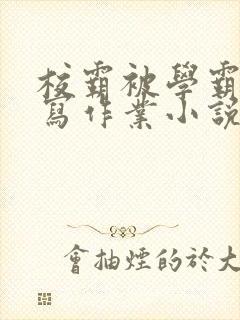 校霸被學霸
寫作業小說
會抽煙的於大